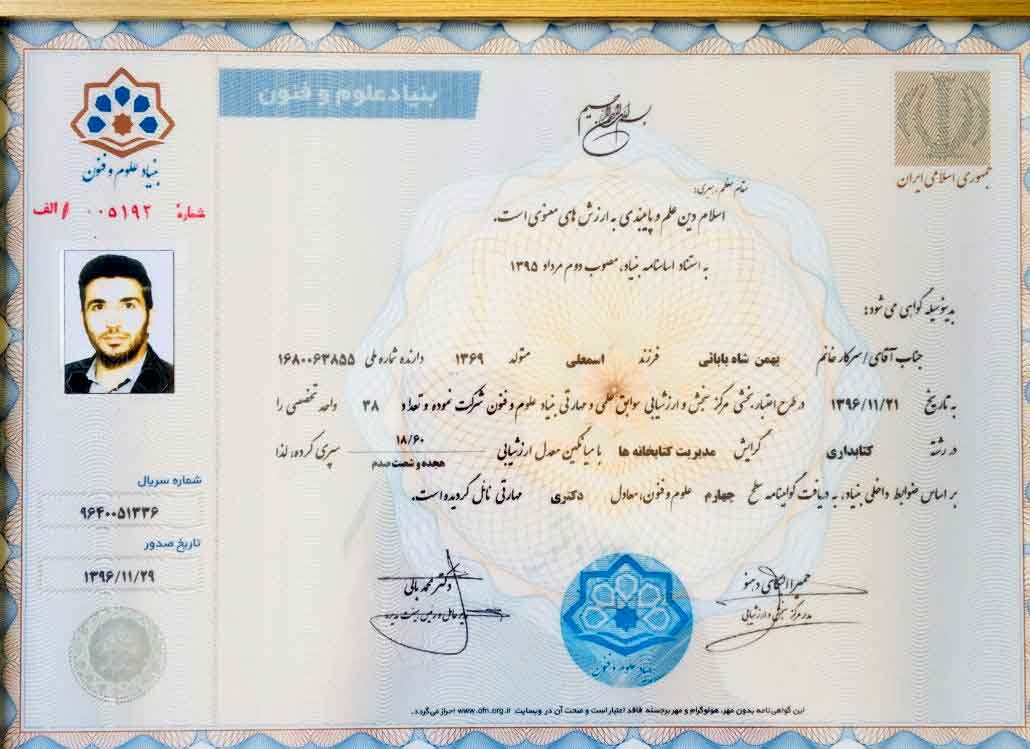 بنیاد علوم و فنون
بسم الله الرحمن الرحیم
جمهوری اسلامی ایران
بنیاد علوم و فنون
شماره ۰۰۵۱۹۲ / الف
مقام معظم رهبری:
اسلام دین علم و پایبندی به ارزش های معنوی است.
به استناد اساسنامه بنیاد، مصوب دوم مرداد ۱۳۹۵
بدینوسیله گواهی می شود:
جناب آقای / سرکار خانم بهمن شاه بابائی فرزند اسمعلی متولد ۱۳۶۹ دارنده شماره ملی ۱۶۸۰۰۶۳۸۵۵
به تاریخ ۱۳۹۶/۱۱/۲۱ در طرح اعتباربخشی مرکز سنجش و ارزشیابی سوابق علمی و مهارتی بنیاد علوم و فنون شرکت نموده و تعداد ۳۸ واحد تخصصی را
در رشته کتابداری گرایش مدیریت کتابخانه ها با میانگین معدل ارزشیابی ۱۸/۶۰ هجده و شصت صدم سپری کرده، لذا
بر اساس ضوابط داخلی بنیاد، به دریافت گواهینامه سطح چهارم علوم و فنون، معادل دکتری مهارتی نائل گردیده است.
شماره سریال
۹۶۴۰۰۵۱۳۳۶
تاریخ صدور
۱۳۹۶/۱۱/۲۹
مدیر مرکز سنجش و ارزشیابی
دکتر محمد بابائی
مدیر عامل و رئیس هیئت مدیره
بنیاد علوم و فنون
این گواهی نامه بدون مهر، هولوگرام و مهر برجسته فاقد اعتبار است و صحت آن در وبسایت www.ofn.org.ir احراز می گردد.